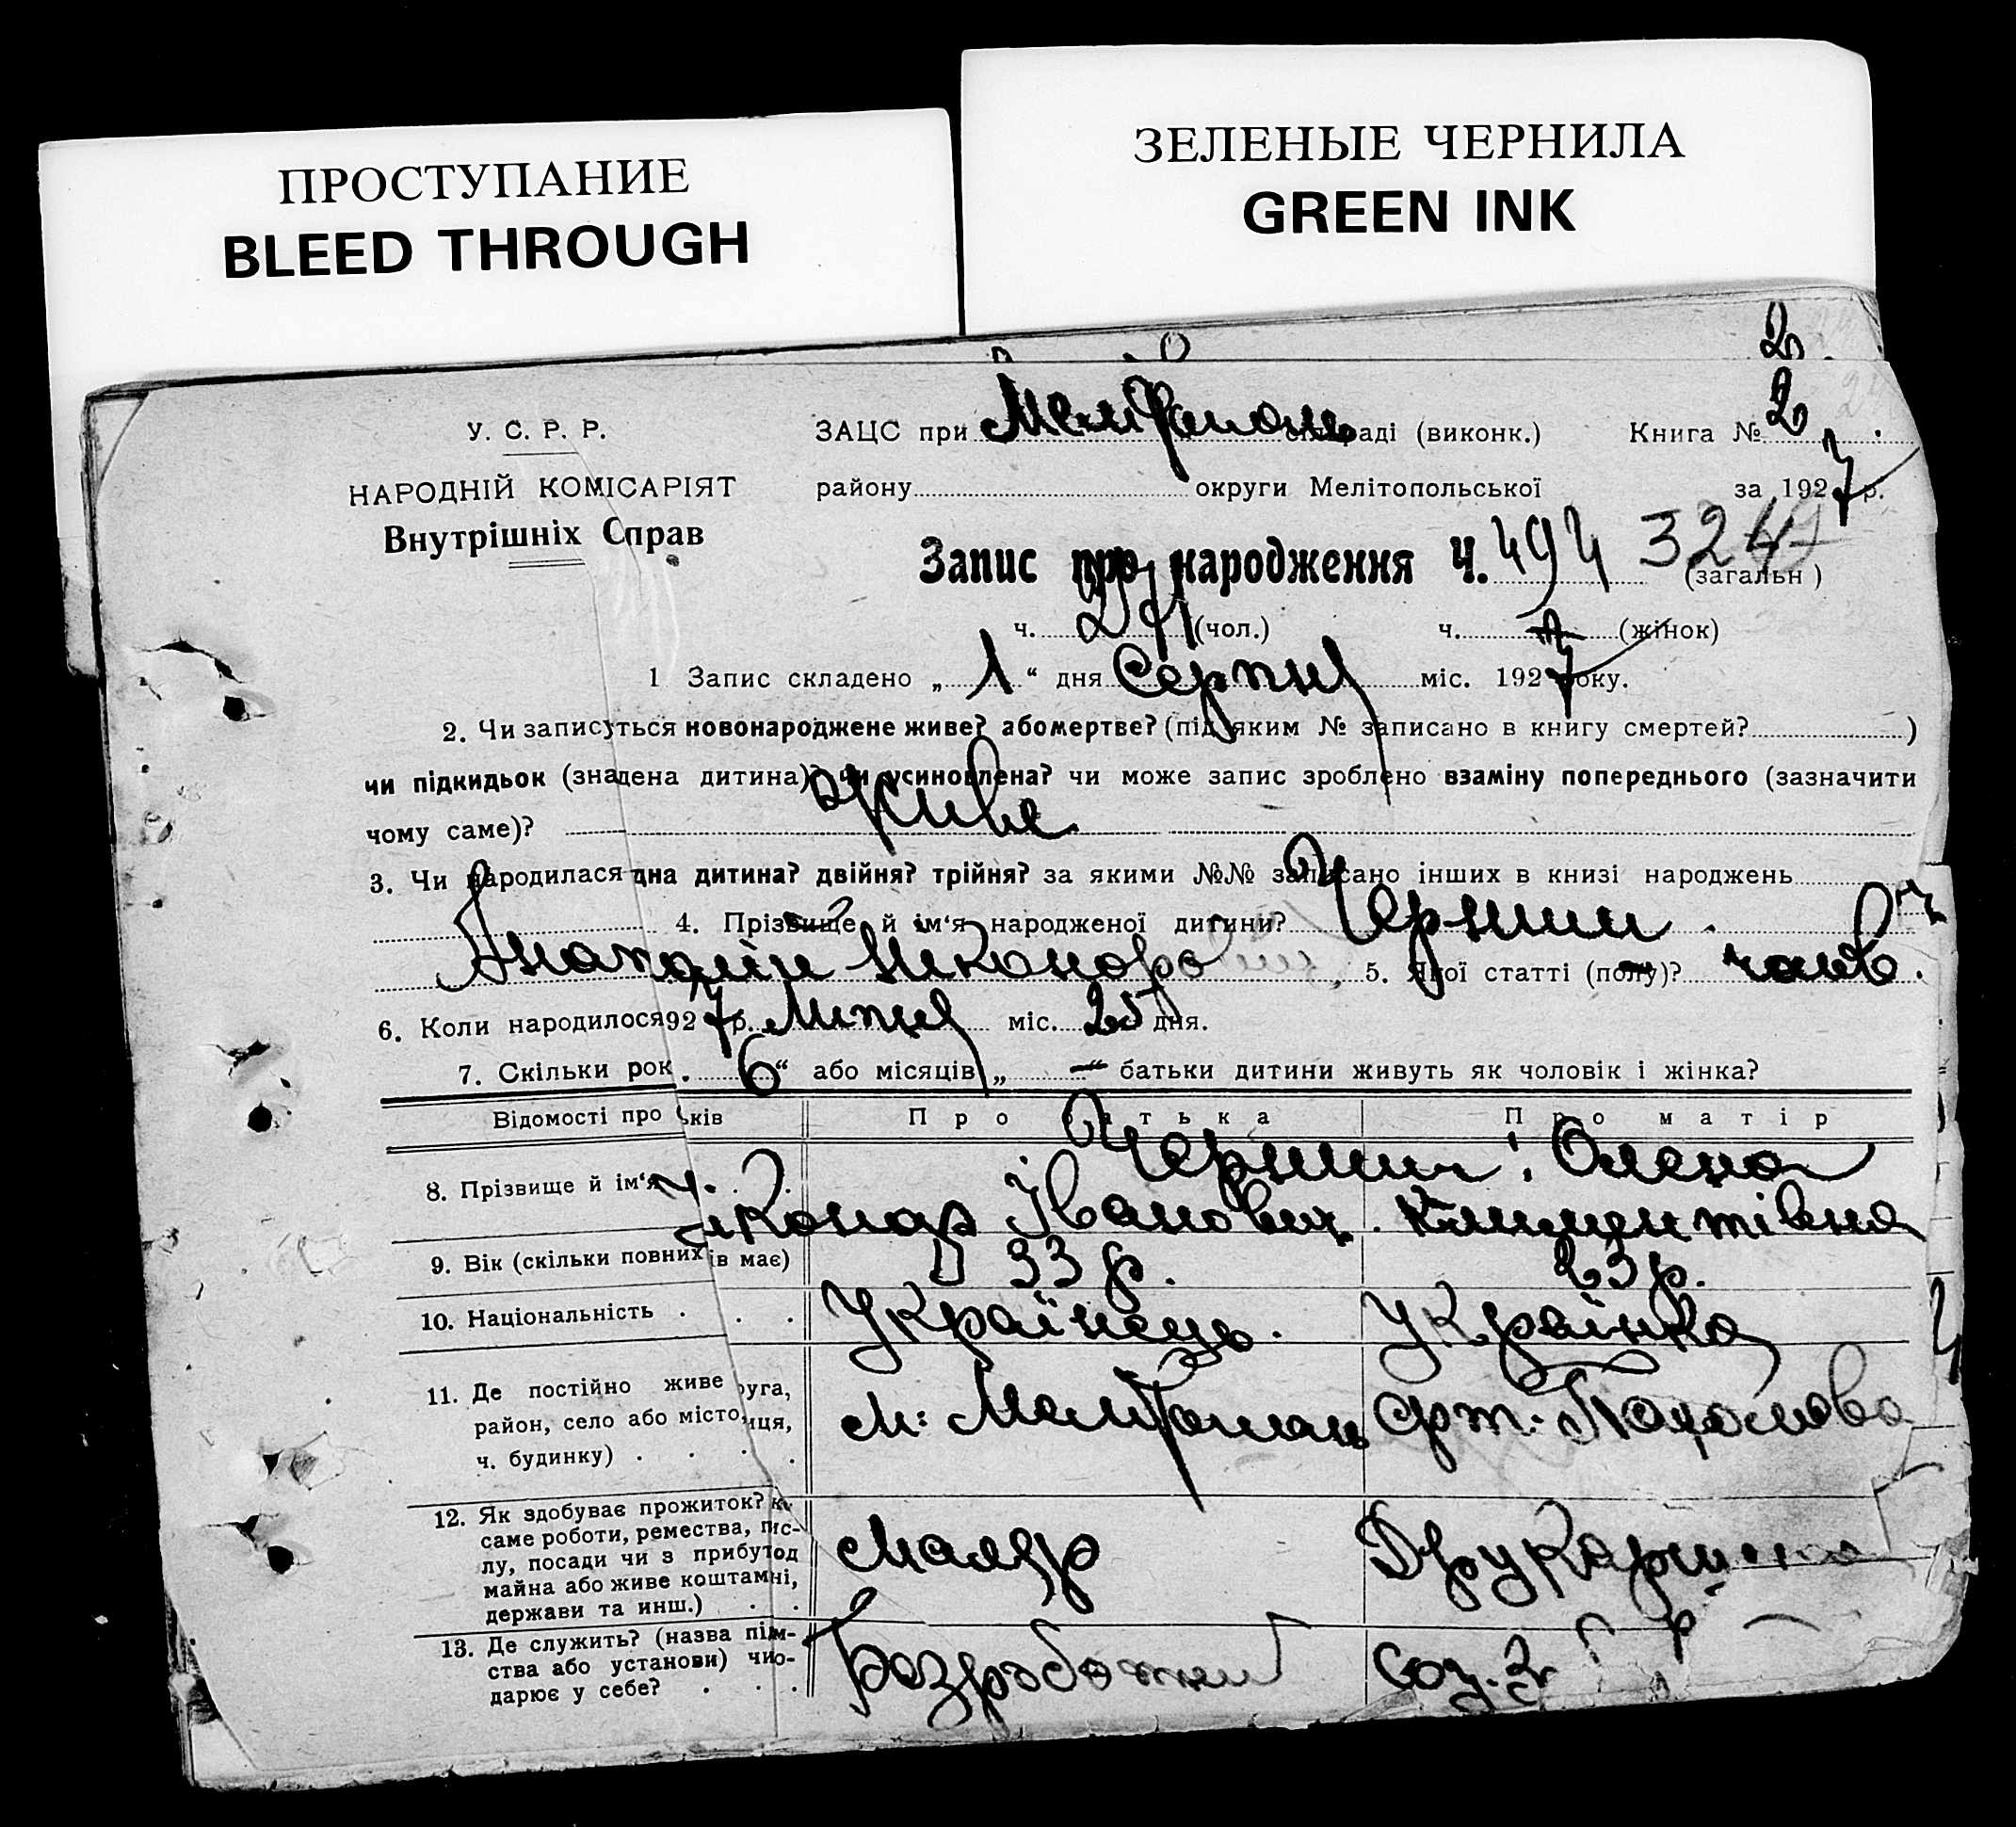 ПРОСТУПАНИЕ
BLEED THROUGH
ЗЕЛЕНЫЕ ЧЕРНИЛА
GREEN INK
2
У. С. Р. Р.
НАРОДНІЙ КОМІСАРІЯТ
Внутрішніх Справ
ЗАЦС при раді (виконк.) Книга № 2
району округи Мелітопольської за 1927 р.
Запис про народження ч. 494 324 (загальн)
ч. (чол.) ч. (жінок)
1 Запис складено „1“ дня Серпня міс. 1927 року.
2. Чи записується новонароджене живе? або мертве? (під яким № записано в книгу смертей? )
чи підкидьок (знадена дитина)? чи усиновлена? чи може запис зроблено взаміну попереднього (зазначити
чому саме)? Живе
3. Чи народилася дна дитина? двійня? трійня? за якими №№ записано інших в книзі народжень
4. Прізвище й ім‘я народженої дитини? Черниш
Анатолій Никонорович 5. Якої статті (полу)? чолов.
6. Коли народилося 927 р. Липня міс. 25 дня.
7. Скільки рок. 6“ або місяців „ —“ батьки дитини живуть як чоловік і жінка?
Відомості про ьків Про батька Про матір
8. Прізвище й ім‘я Черниш Олена
Никонор Іванович Климентівна
9. Вік (скільки повних ів має) 33 р. 23 р.
10. Національність Українець. Українка
11. Де постійно живе руга,
район, село або місто, иця,
ч. будинку)
м. Мелітополь
12. Як здобуває прожиток?
саме роботи, ремества,
лу, посади чи з прибутод
майна або живе коштамні,
держави та инш.)
Маляр
13. Де служить? (назва
ства або установи)
дарює у себе?
Безработний